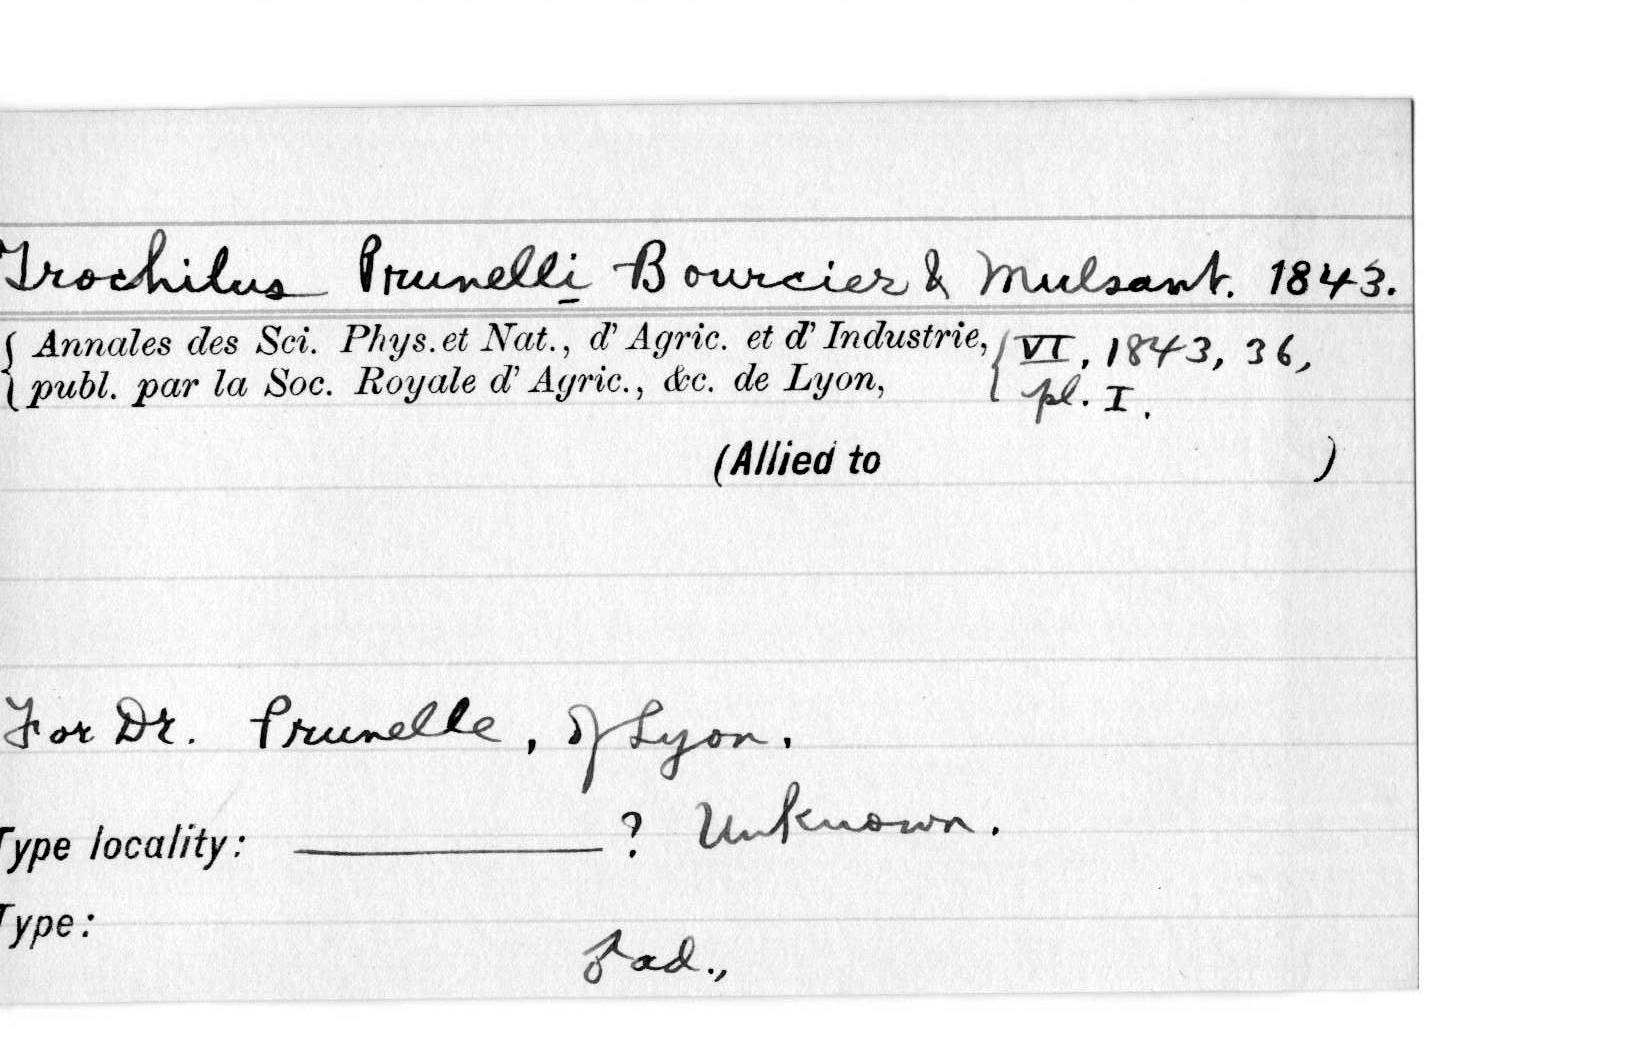 Trochilus Prunelli Bourcier & Mulsant. 1843.
{ Annales des Sci. Phys. et Nat., d' Agric. et d' Industrie, { VI, 1843, 36,
publ. par la Soc. Royale d' Agric., &c. de Lyon, pl. I.
(Allied to )
For Dr. Prunelle, of Lyon.
Type locality: ? Unknown.
Type:
♂ ad.,